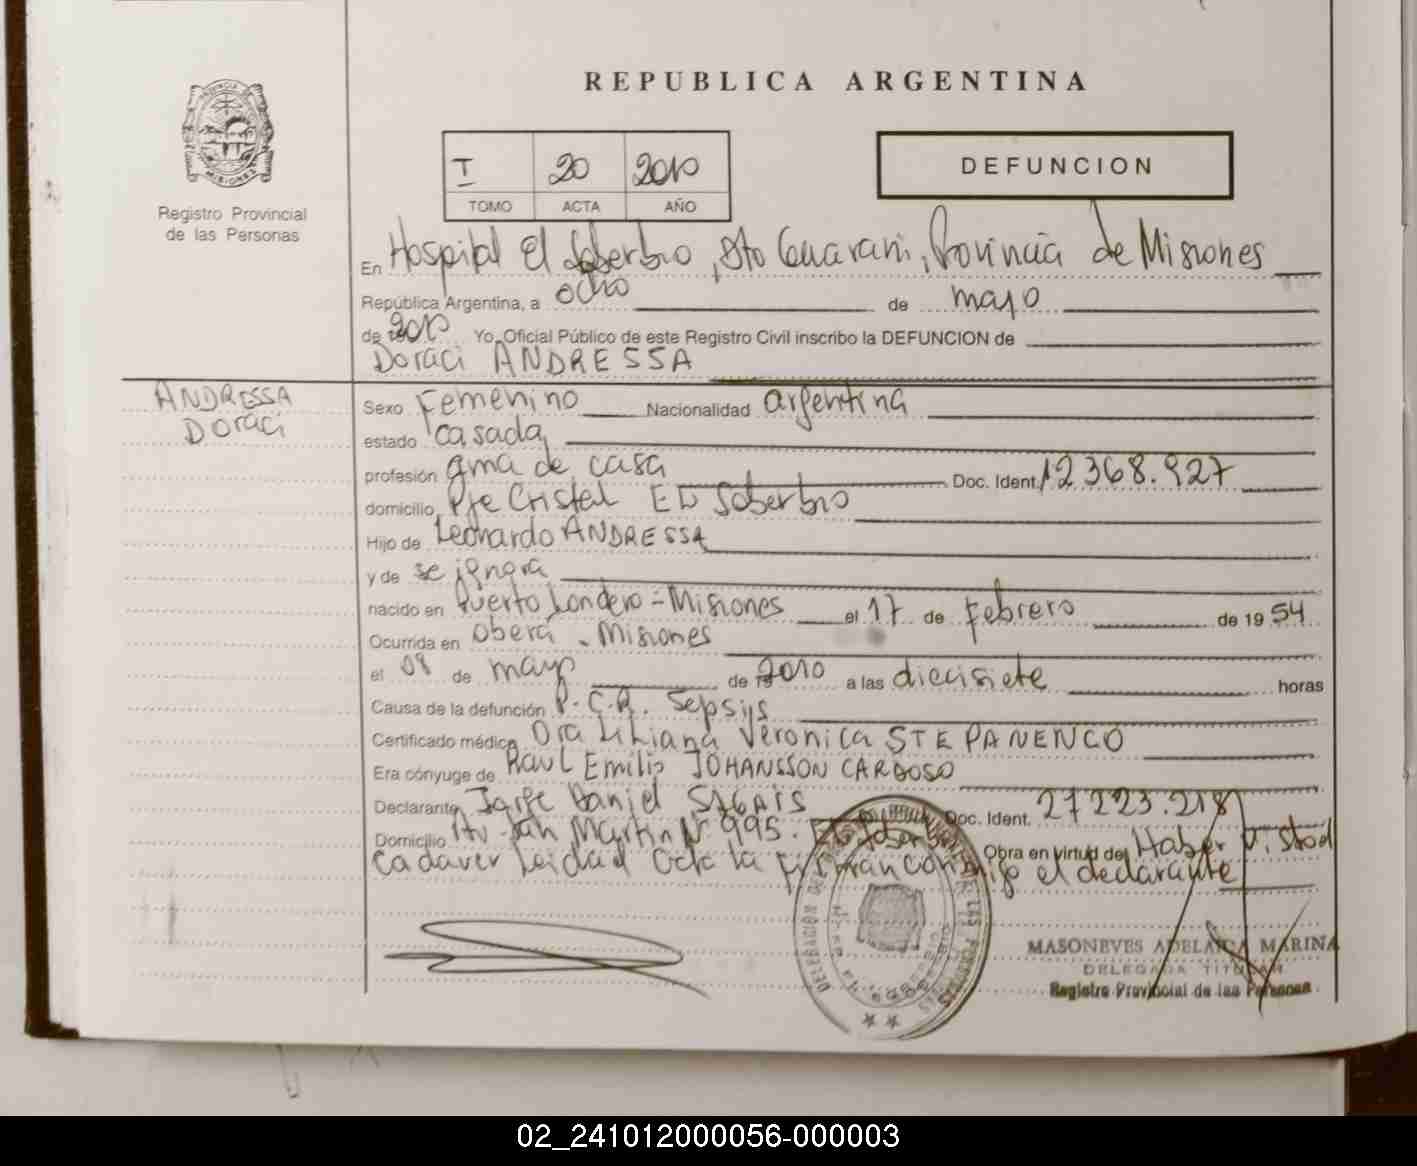 REPUBLICA ARGENTINA
PROVINCIA DE
MISIONES
Registro Provincial
de las Personas
I 20 2010
TOMO ACTA AÑO
DEFUNCION
En Hospital El Soberbio, Dto Guarani, Provincia de Misiones
República Argentina, a ocho de mayo
de 2010 Yo, Oficial Público de este Registro Civil inscribo la DEFUNCION de
Doraci ANDRESSA
ANDRESSA
Doraci
Sexo Femenino Nacionalidad argentina
estado casada
profesión ama de casa Doc. Ident. 12368.927
domicilio Pje Cristal El Soberbio
Hijo de Leonardo ANDRESSA
y de se ignora
nacido en Puerto Londero - Misiones el 17 de Febrero de 1954
Ocurrida en Oberá - Misiones
el 08 de mayo de 2010 a las diecisiete horas
Causa de la defunción P.C.R. Sepsis
Certificado médico Dra Liliana Veronica STEPANENCO
Era cónyuge de Raul Emilio JOHANSSON CARDOSO
Declarante Jorge Daniel Doc. Ident. 27223.218
Domicilio Av San Martin Nº 995. El Soberbio Obra en virtud de Haber Visto el
cadaver Leida el Acta la firman conmigo el declarante
MASONEVES ADELAIDA MARINA
DELEGADA TITULAR
Registro Provincial de las Personas
02_241012000056-000003